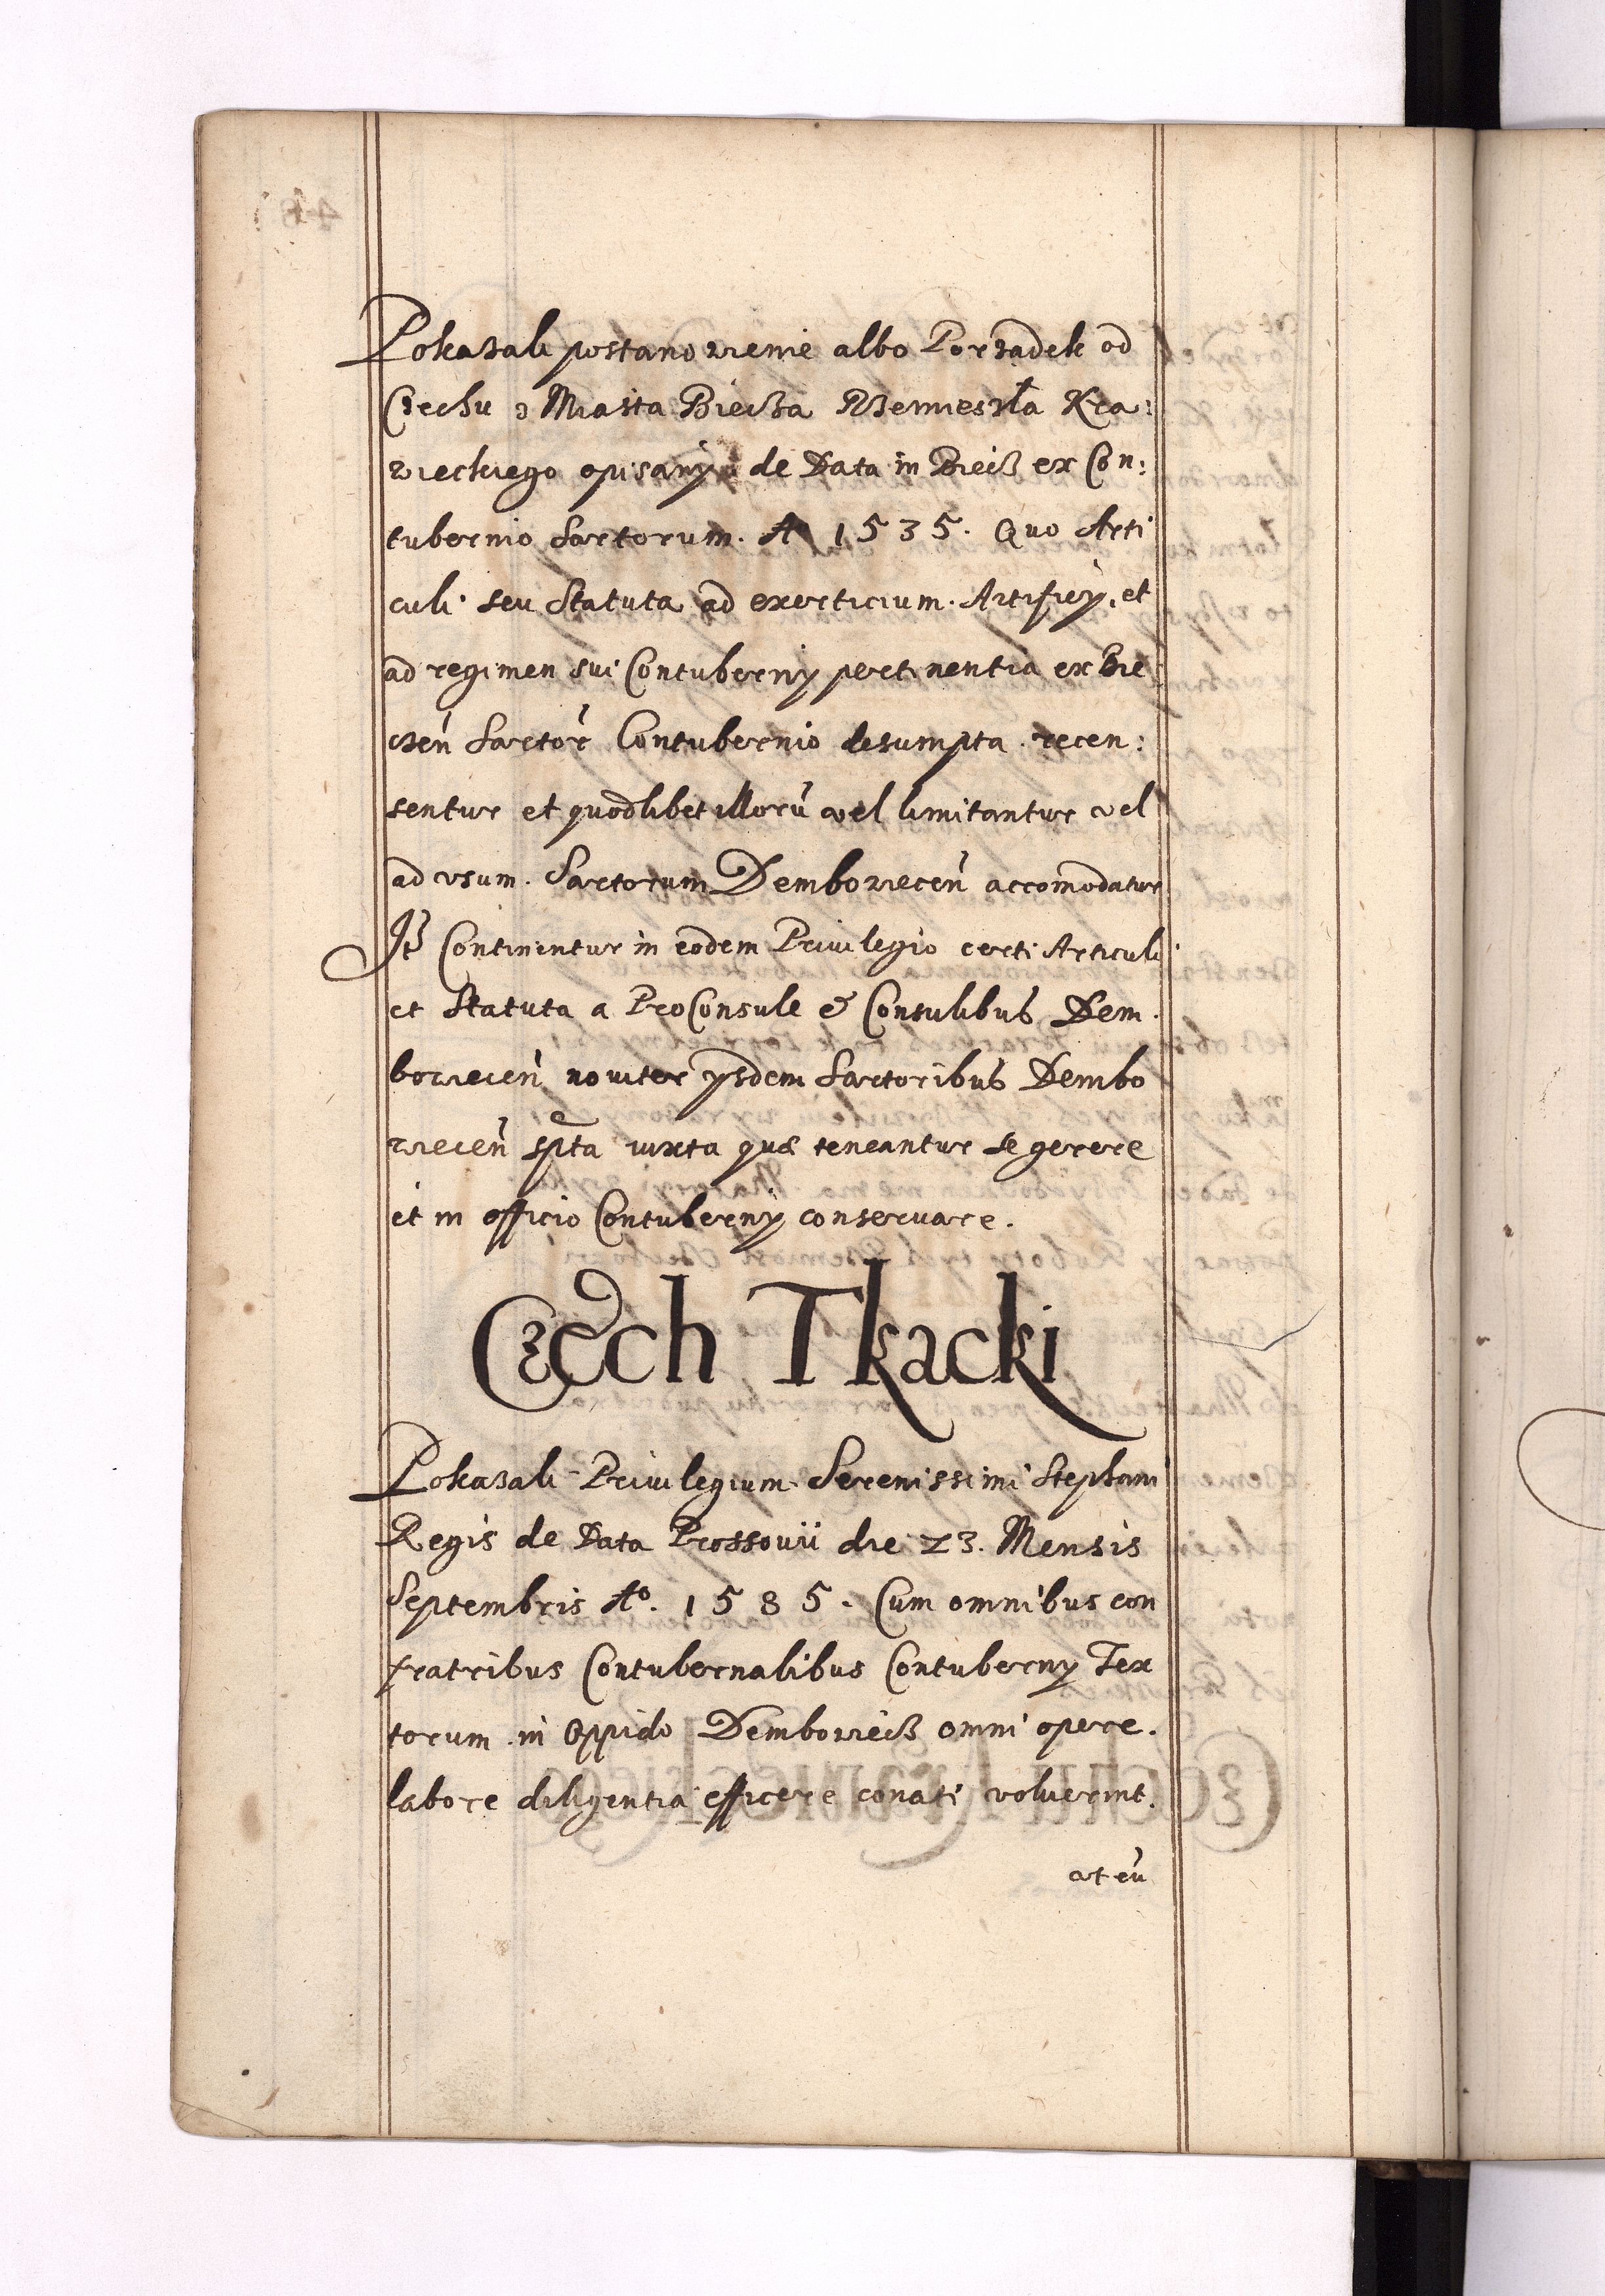 Pokazali postanowienie albo Porządek od
Czechu z Miasta Biecza Rzemiesła Kra:
wieckiego opisany de Data in Biecz ex Con:
tubernio Sartorum. Aº 1535. Quo Arti
culi seu Statuta ad exerticium. Artificÿ, et
ad regimen sui Contubernÿ pertinentia ex Bie
czeń Sartoŕ Contubernio desumpta recen:
sentur et quodlibet illorú vel limitantur vel
ad vsum. Sartorum Dembowiecen̄ accomodatur
Itē Continentur in eodem Priuilegio certi Articuli
et Statuta a ProConsule & Consulibus Dem.
bowiecen̄ nouiter ÿsdem Sartoribus Dembo
wiecen̄ spta iuxta quæ teneantur se gerere
et in officio Contubernÿ conseruare.
Czech Tkacki
Pokazali Priuilegium Serenissimi Stephani
Regis de Data Prossouii die 23. Mensis
Septembris Aº. 1585. Cum omnibus con
fratribus Contubernalibus Contubernÿ Tex
torum in Oppido Dembowiecz omni opere.
labore diligentia efficere conati voluerint.